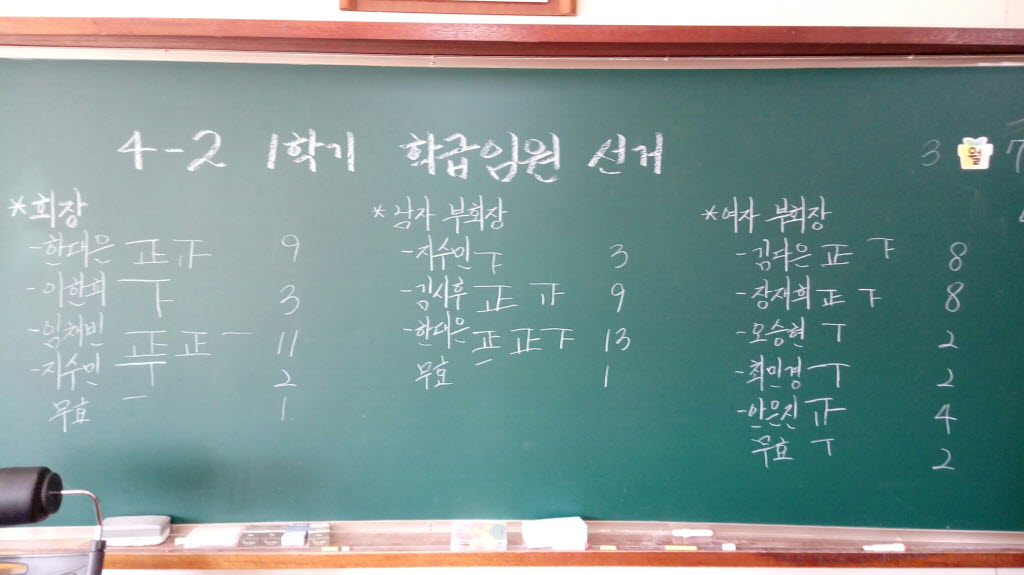 4-2 1학기 학급임원 선거
3 월 7
*회장
-한대은 正下 9
-이한희 下 3
-임채빈 正正一 11
-지수민 丅 2
무효 一 1
*남자 부회장
-지수민 下 3
-김시후 正 9
-한대은 正正下 13
무효 一 1
*여자 부회장
-김다은 正下 8
-장재희 正下 8
-오승현 丅 2
-최민경 丅 2
-안은진 4
무효 丅 2